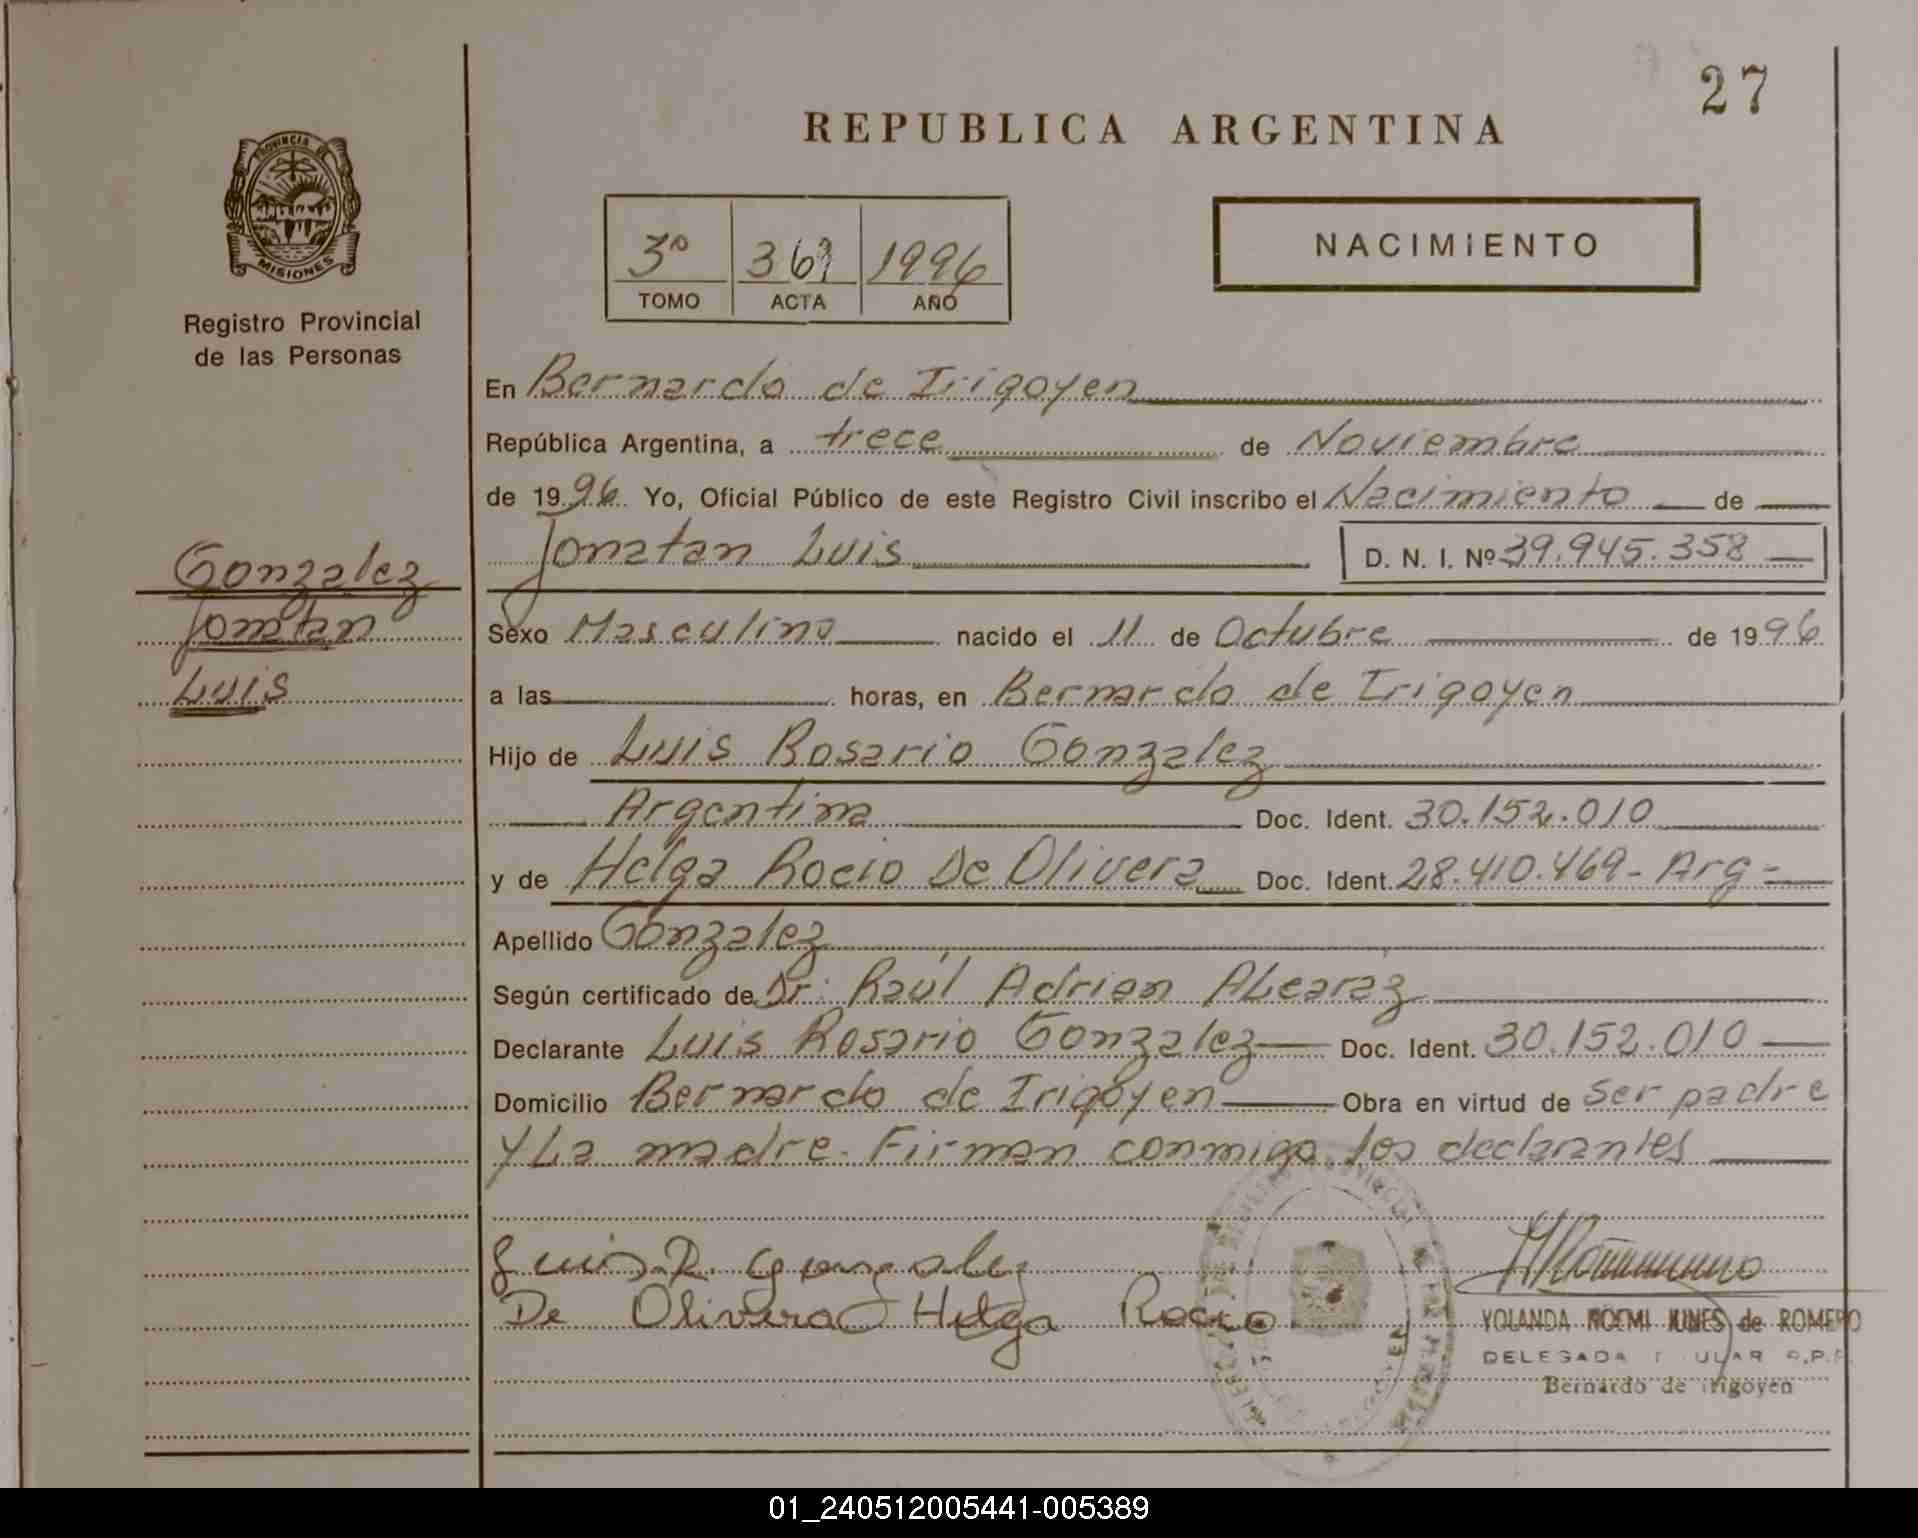 27
REPUBLICA ARGENTINA
PROVINCIA DE
MISIONES
Registro Provincial
de las Personas
3º 1996
TOMO ACTA AÑO
NACIMIENTO
En Bernardo de Irigoyen
República Argentina, a trece de Noviembre
de 1996. Yo, Oficial Público de este Registro Civil inscribo el Nacimiento de
Jonatan Luis D. N. I. Nº 39.945.358
Gonzalez
Jonatan
Luis
Sexo Masculino nacido el 11 de Octubre de 1996
a las horas, en Bernardo de Irigoyen
Hijo de Luis Rosario Gonzalez
Argentina Doc. Ident. 30.152.010
y de Helga Rocio De Olivera Doc. Ident. 28.410.469 - Arg -
Apellido Gonzalez
Según certificado de Dr: Raúl Adrian Alcaraz
Declarante Luis Rosario Gonzalez Doc. Ident. 30.152.010
Domicilio Bernardo de Irigoyen Obra en virtud de ser padre
y La madre. Firman conmigo los declarantes
Luis R. Gonzalez
De Olivera Helga Rocio
YOLANDA NOEMI de ROMERO
DELEGADA R.P.P.
Bernardo de Irigoyen
01_240512005441-005389